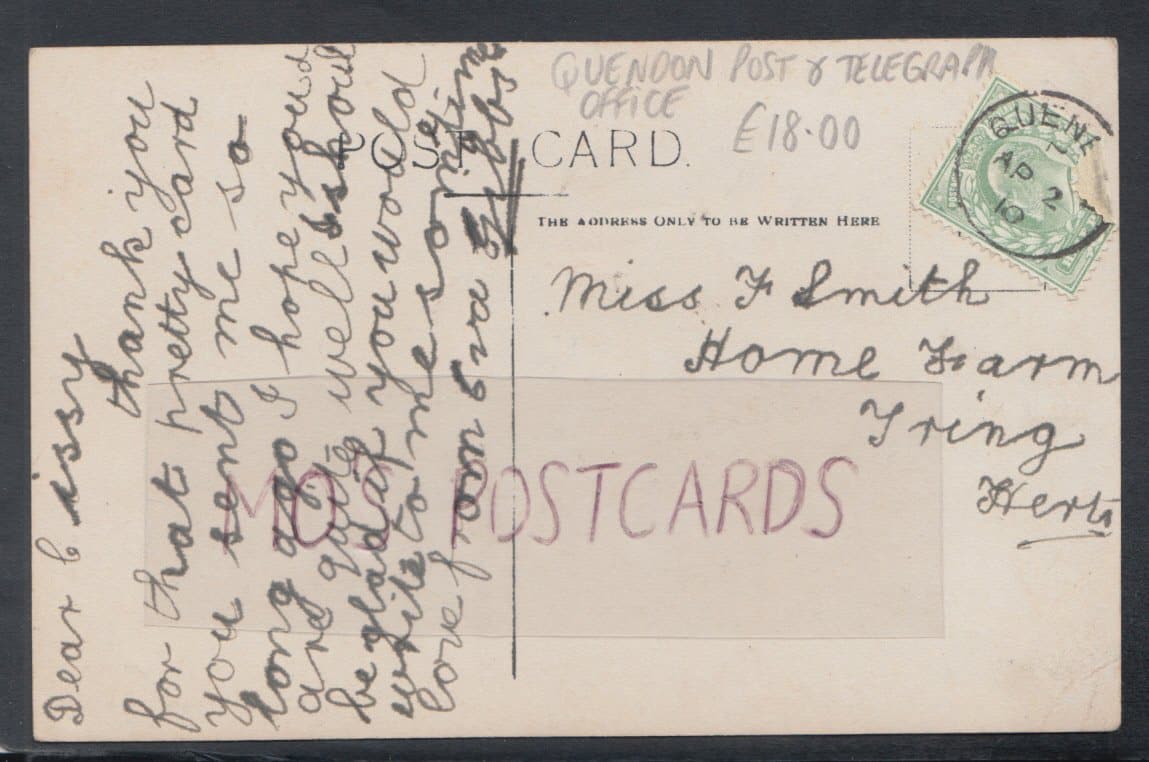 QUENDON POST & TELEGRAPH
OFFICE
£18.00
POST CARD.
THE ADDRESS ONLY TO BE WRITTEN HERE
QUEN
AP 2
10
Miss F Smith
Home Farm
Tring
Herts
MO'S POSTCARDS
Dear Cissy
thank you
for that pretty card
you sent me so
long ago I hope you
are quite well I shoul
be glad if you would
write to me some time
love from Eva Gibbs